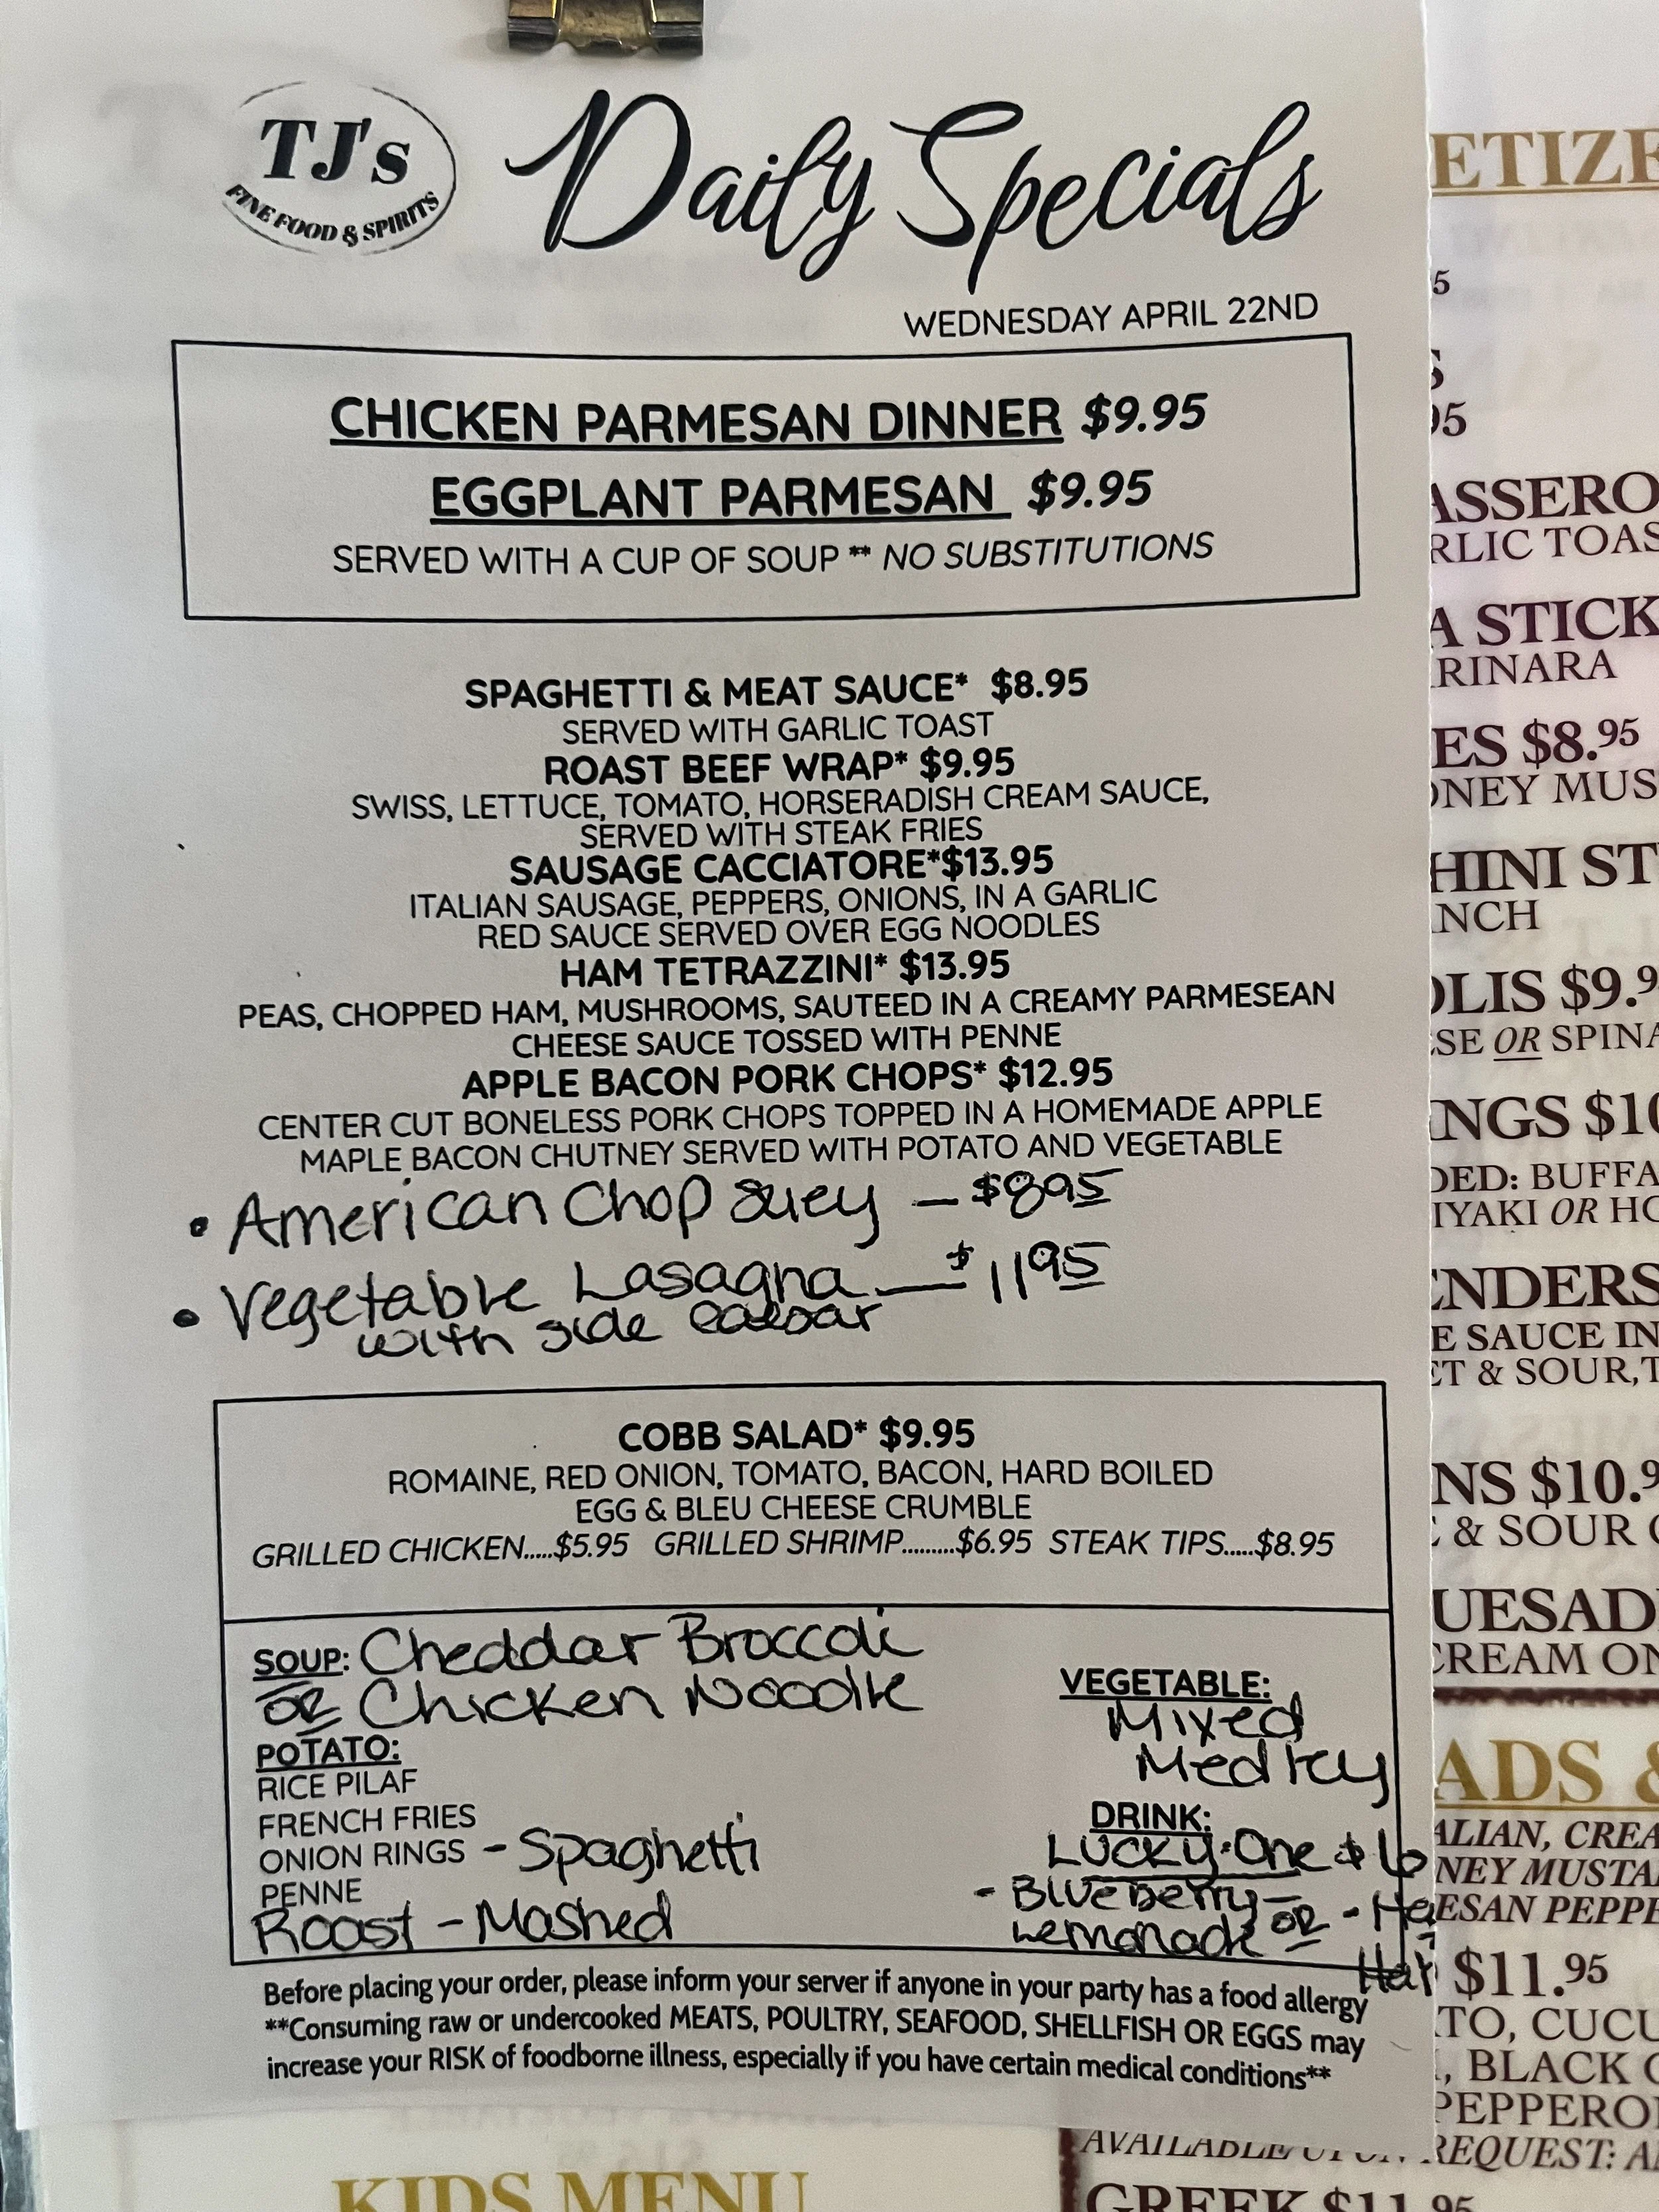 TJ's
FINE FOOD & SPIRITS
Daily Specials
WEDNESDAY APRIL 22ND
CHICKEN PARMESAN DINNER $9.95
EGGPLANT PARMESAN $9.95
SERVED WITH A CUP OF SOUP ** NO SUBSTITUTIONS
SPAGHETTI & MEAT SAUCE* $8.95
SERVED WITH GARLIC TOAST
ROAST BEEF WRAP* $9.95
SWISS, LETTUCE, TOMATO, HORSERADISH CREAM SAUCE,
SERVED WITH STEAK FRIES
SAUSAGE CACCIATORE*$13.95
ITALIAN SAUSAGE, PEPPERS, ONIONS, IN A GARLIC
RED SAUCE SERVED OVER EGG NOODLES
HAM TETRAZZINI* $13.95
PEAS, CHOPPED HAM, MUSHROOMS, SAUTEED IN A CREAMY PARMESEAN
CHEESE SAUCE TOSSED WITH PENNE
APPLE BACON PORK CHOPS* $12.95
CENTER CUT BONELESS PORK CHOPS TOPPED IN A HOMEMADE APPLE
MAPLE BACON CHUTNEY SERVED WITH POTATO AND VEGETABLE
• American Chop Suey - $8.95
• Vegetable Lasagna - $11.95
with side caesar
COBB SALAD* $9.95
ROMAINE, RED ONION, TOMATO, BACON, HARD BOILED
EGG & BLEU CHEESE CRUMBLE
GRILLED CHICKEN.....$5.95 GRILLED SHRIMP.........$6.95 STEAK TIPS.....$8.95
SOUP: Cheddar Broccoli
OR Chicken Noodle
POTATO:
RICE PILAF
FRENCH FRIES
ONION RINGS - Spaghetti
PENNE
Roast - Mashed
VEGETABLE:
Mixed
Medley
DRINK:
Lucky One $6
- Blueberry - OR
Lemonade
Before placing your order, please inform your server if anyone in your party has a food allergy
**Consuming raw or undercooked MEATS, POULTRY, SEAFOOD, SHELLFISH OR EGGS may
increase your RISK of foodborne illness, especially if you have certain medical conditions**
ETIZE
5
S
95
ASSERO
RLIC TOAS
A STICK
RINARA
ES $8.95
ONEY MUS
HINI ST
NCH
OLIS $9.9
ESE OR SPINA
INGS $10
DED: BUFFA
IYAKI OR HO
ENDERS
E SAUCE IN
ET & SOUR,T
NS $10.9
& SOUR
UESAD
CREAM ON
ADS &
ALIAN, CREA
NEY MUSTA
ESAN PEPPE
$11.95
TO, CUCU
, BLACK
PEPPERO
AVAILABLE UPON REQUEST: A
GREEK $11.95
KIDS MENU